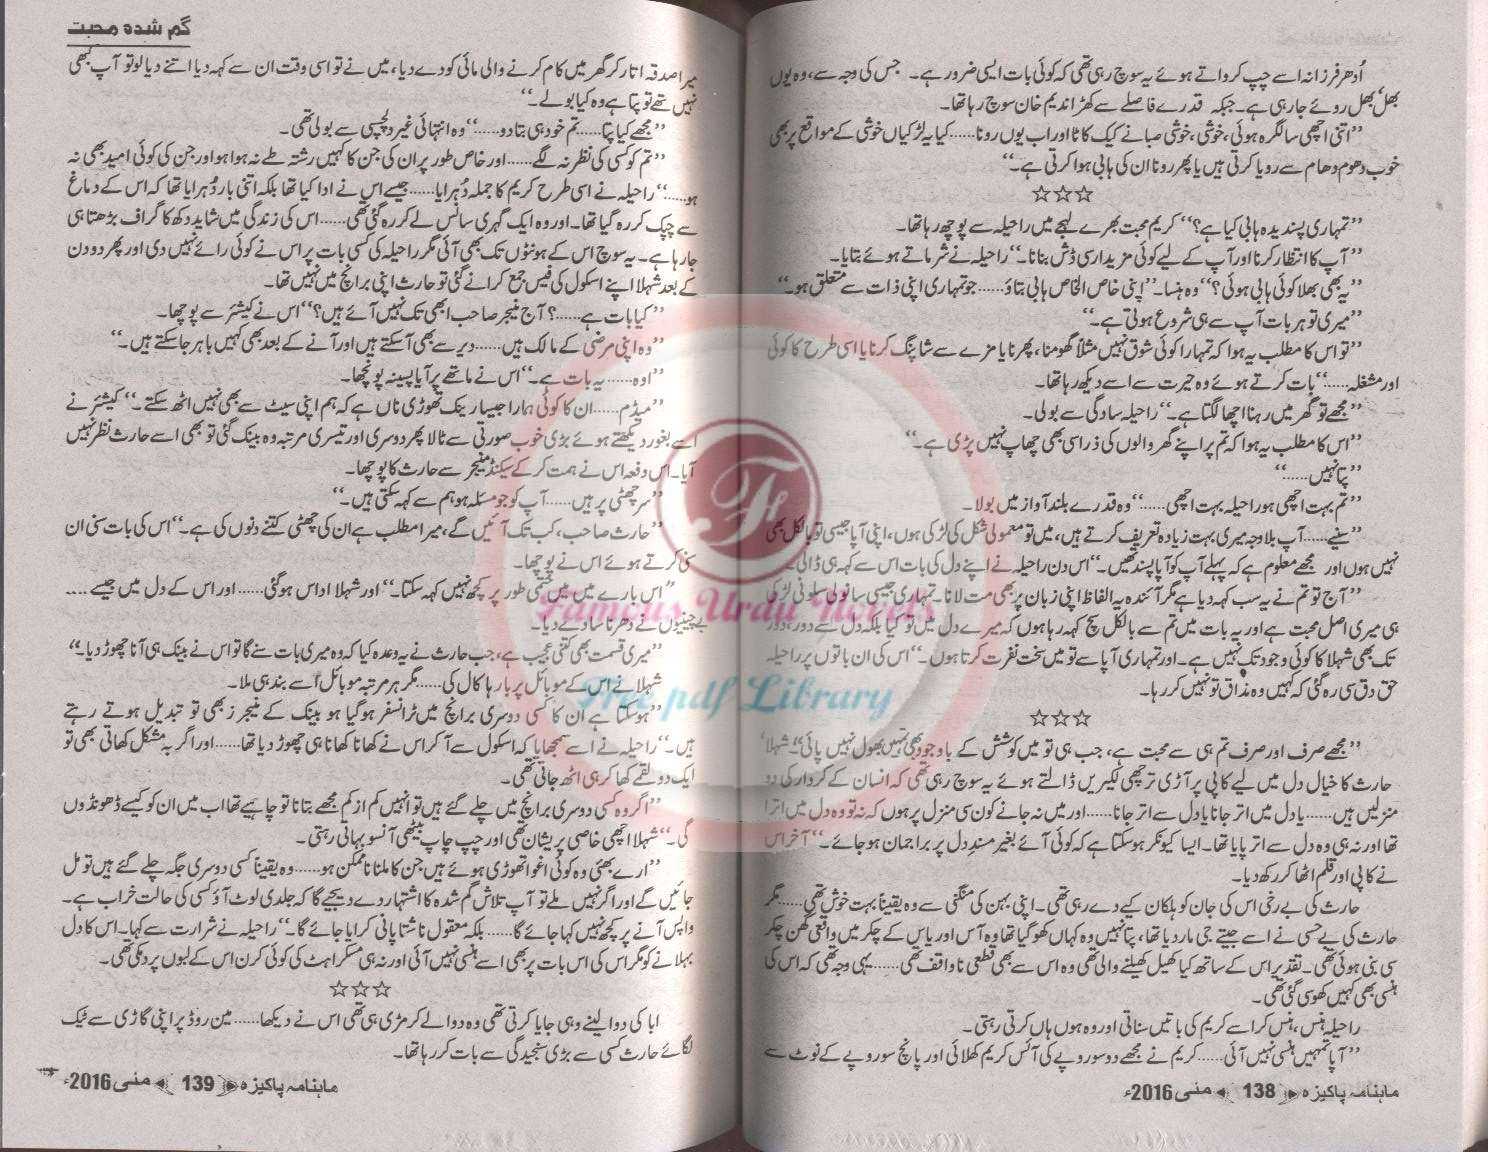 اُدھر فرزانہ اسے چپ کرواتے ہوئے یہ سوچ رہی تھی کہ کوئی بات ایسی ضرور ہے۔ جس کی وجہ سے، وہ یوں
بھل بھل روئے جا رہی ہے۔ جبکہ قدرے فاصلے سے کھڑا ندیم خان سوچ رہا تھا۔
”اتنی اچھی سالگرہ ہوئی، خوشی، خوشی صبا نے کیک کاٹا اور اب یوں رونا......کیا یہ لڑکیاں خوشی کے مواقع پر بھی
خوب دھوم دھام سے رویا کرتی ہیں یا پھر رونا ان کی ہابی ہوا کرتی ہے۔“
☆☆☆
”تمہاری پسندیدہ ہابی کیا ہے؟“ کریم محبت بھرے لہجے میں راحیلہ سے پوچھ رہا تھا۔
”آپ کا انتظار کرنا اور آپ کے لیے کوئی مزیدار سی ڈش بنانا۔“ راحیلہ نے شرماتے ہوئے بتایا۔
”یہ بھی بھلا کوئی ہابی ہوئی؟“ وہ ہنسا۔ ”اپنی خاص الخاص ہابی بتاؤ......جو تمہاری اپنی ذات سے متعلق ہو۔“
”میری تو ہر بات آپ سے ہی شروع ہوتی ہے۔“
”تو اس کا مطلب یہ ہوا کہ تمہارا کوئی شوق نہیں مثلاً گھومنا، پھرنا یا مزے سے شاپنگ کرنا یا اسی طرح کا کوئی
اور مشغلہ......“ بات کرتے ہوئے وہ حیرت سے اسے دیکھ رہا تھا۔
”مجھے تو گھر میں رہنا اچھا لگتا ہے۔“ راحیلہ سادگی سے بولی۔
”اس کا مطلب یہ ہوا کہ تم پر اپنے گھر والوں کی ذرا سی بھی چھاپ نہیں پڑی ہے۔“
”پتا نہیں......“
”تم بہت اچھی ہو راحیلہ بہت اچھی......“ وہ قدرے بلند آواز میں بولا۔
”سنیے......آپ بلاوجہ میری بہت زیادہ تعریف کرتے ہیں، میں تو معمولی شکل کی لڑکی ہوں، اپنی آپا جیسی تو بالکل بھی
نہیں ہوں اور مجھے معلوم ہے کہ پہلے آپ کو آپا پسند تھیں۔“ اس دن راحیلہ نے اپنے دل کی بات اس سے کہہ ہی ڈالی۔
”آج تو تم نے یہ سب کہہ دیا ہے مگر آئندہ یہ الفاظ اپنی زبان پر بھی مت لانا۔ تمہاری جیسی سانولی سلونی لڑکی
ہی میری اصل محبت ہے اور یہ بات میں تم سے بالکل سچ کہہ رہا ہوں کہ میرے دل میں تو کیا بلکہ دل سے دور، دور
تک بھی شہلا کا کوئی وجود تک نہیں ہے۔ اور تمہاری آپا سے تو میں سخت نفرت کرتا ہوں۔“ اس کی ان باتوں پر راحیلہ
حق دق سی رہ گئی کہ کہیں وہ مذاق تو نہیں کر رہا۔
☆☆☆
”مجھے صرف اور صرف تم ہی سے محبت ہے، جب ہی تو میں کوشش کے باوجود بھی تمہیں بھول نہیں پائی“ شہلا
حارث کا خیال دل میں لیے کاپی پر آڑی ترچھی لکیریں ڈالتے ہوئے یہ سوچ رہی تھی کہ انسان کے کردار کی دو
منزلیں ہیں......یا دل میں اتر جانا یا دل سے اتر جانا......اور میں نہ جانے کون سی منزل پر ہوں کہ نہ تو وہ دل میں اترا
تھا اور نہ ہی وہ دل سے اتر پایا تھا۔ ایسا کیونکر ہوسکتا ہے کہ کوئی آئے بغیر مسندِ دل پر براجمان ہو جائے۔“ آخر اس
نے کاپی اور قلم اٹھا کر رکھ دیا۔
حارث کی بے رخی اس کی جان کو ہلکان کیے دے رہی تھی۔ اپنی بہن کی منگنی سے وہ یقیناً بہت خوش تھی......مگر
حارث کی بے حسی نے اسے جیتے جی مار دیا تھا، پتا نہیں وہ کہاں کھو گیا تھا وہ آس اور یاس کے چکر میں واقعی گھن چکر
سی بنی ہوئی تھی۔ تقدیر اس کے ساتھ کیا کھیل کھیلنے والی تھی وہ اس سے بھی قطعی ناواقف تھی......یہی وجہ تھی کہ اس کی
ہنسی بھی کہیں کھو سی گئی تھی۔
راحیلہ ہنس، ہنس کر اسے کریم کی باتیں سناتی اور وہ ہوں ہاں کرتی رہتی۔
”آپا تمہیں ہنسی نہیں آئی......کریم نے مجھے دو سو روپے کی آئس کریم کھلائی اور پانچ سو روپے کے نوٹ سے
ماہنامہ پاکیزہ 138 مئی 2016ء
گم شدہ محبت
میرا صدقہ اتار کر گھر میں کام کرنے والی مائی کو دے دیا، میں نے تو اسی وقت ان سے کہہ دیا اتنے دیالو تو آپ کبھی
نہیں تھے تو پتا ہے وہ کیا بولے۔“
”مجھے کیا پتا......تم خود ہی بتا دو......“ وہ انتہائی غیر دلچسپی سے بولی تھی۔
”تم کو کسی کی نظر نہ لگے......اور خاص طور پر ان کی جن کا کہیں رشتہ طے نہ ہوا ہو اور جن کی کوئی امید بھی نہ
ہو......“ راحیلہ نے اسی طرح کریم کا جملہ دُہرایا......جیسے اس نے ادا کیا تھا بلکہ اتنی بار دُہرایا تھا کہ اس کے دماغ
سے چپک کر رہ گیا تھا۔ اور وہ ایک گہری سانس لے کر رہ گئی تھی......اس کی زندگی میں شاید دکھ کا گراف بڑھتا ہی
جا رہا ہے۔ یہ سوچ اس کے ہونٹوں تک بھی آئی مگر راحیلہ کی کسی بات پر اس نے کوئی رائے نہیں دی اور پھر دو دن
کے بعد شہلا اپنے اسکول کی فیس جمع کرانے گئی تو حارث اپنی برانچ میں نہیں تھا۔
”کیا بات ہے......؟ آج منیجر صاحب ابھی تک نہیں آئے ہیں؟“ اس نے کیشئر سے پوچھا۔
”وہ اپنی مرضی کے مالک ہیں......دیر سے بھی آسکتے ہیں اور آنے کے بعد بھی کہیں باہر جا سکتے ہیں۔“
”اوہ......یہ بات ہے۔“ اس نے ماتھے پر آیا پسینہ پونچھا۔
”میڈم......ان کا کوئی ہمارا جیسا رینک تھوڑی ناں ہے کہ ہم اپنی سیٹ سے بھی نہیں اٹھ سکتے۔“ کیشئر نے
اسے بغور دیکھتے ہوئے بڑی خوب صورتی سے ٹالا پھر دوسری اور تیسری مرتبہ وہ بینک گئی تو بھی اسے حارث نظر نہیں
آیا۔ اس دفعہ اس نے ہمت کر کے سیکنڈ منیجر سے حارث کا پوچھا۔
”سر چھٹی پر ہیں......آپ کو جو مسئلہ ہو ہم سے کہہ سکتی ہیں۔“
”حارث صاحب، کب تک آئیں گے، میرا مطلب ہے ان کی چھٹی کتنے دنوں کی ہے۔“ اس کی بات سنی ان
سنی کرتے ہوئے اس نے پوچھا۔
”اس بارے میں میں حتمی طور پر کچھ نہیں کہہ سکتا۔“ اور شہلا اداس ہوگئی......اور اس کے دل میں جیسے ....
بے چینیوں نے دھرنا سا دے دیا۔
”میری قسمت بھی کتنی عجیب ہے، جب حارث نے یہ وعدہ کیا کہ وہ میری بات سنے گا تو اس نے بینک ہی آنا چھوڑ دیا۔“
شہلا نے اس کے موبائل پر بارہا کال کی......مگر ہر مرتبہ موبائل اُسے بند ہی ملا۔
”ہوسکتا ہے ان کا کسی دوسری برانچ میں ٹرانسفر ہوگیا ہو بینک کے منیجرز بھی تو تبدیل ہوتے رہتے
ہیں۔“ راحیلہ نے اسے سمجھایا کہ اسکول سے آکر اس نے کھانا کھانا ہی چھوڑ دیا تھا......اور اگر بہ مشکل کھاتی بھی تو
ایک دو لقمے کھا کر ہی اٹھ جاتی تھی۔
”اگر وہ کسی دوسری برانچ میں چلے گئے ہیں تو انہیں کم از کم مجھے بتانا تو چاہیے تھا اب میں ان کو کیسے ڈھونڈوں
گی۔“ شہلا اچھی خاصی پریشان تھی اور چپ چاپ بیٹھی آنسو بہاتی رہتی۔
”ارے بھئی وہ کوئی اغوا تھوڑی ہوئے ہیں جن کا ملنا ناممکن ہو......وہ یقیناً کسی دوسری جگہ چلے گئے ہیں تو مل
جائیں گے اور اگر نہیں ملے تو آپ تلاش گم شدہ کا اشتہار دے دیجیے گا کہ جلدی لوٹ آؤ کسی کی حالت خراب ہے۔
واپس آنے پر کچھ نہیں کہا جائے گا......بلکہ معقول ناشتا پانی کرایا جائے گا۔“ راحیلہ نے شرارت سے کہا۔ اس کا دل
بہلانے کو مگر اس کی اس بات پر بھی اسے ہنسی نہیں آئی اور نہ ہی مسکراہٹ کی کوئی کرن اس کے لبوں پر دمکی تھی۔
☆☆☆
ابا کی دوا لینے وہی جایا کرتی تھی وہ دوا لے کر مڑی ہی تھی اس نے دیکھا......مین روڈ پر اپنی گاڑی سے ٹیک
لگائے حارث کسی سے بڑی سنجیدگی سے بات کر رہا تھا۔
ماہنامہ پاکیزہ 139 مئی 2016ء
Famous Urdu Novels
Free pdf Library